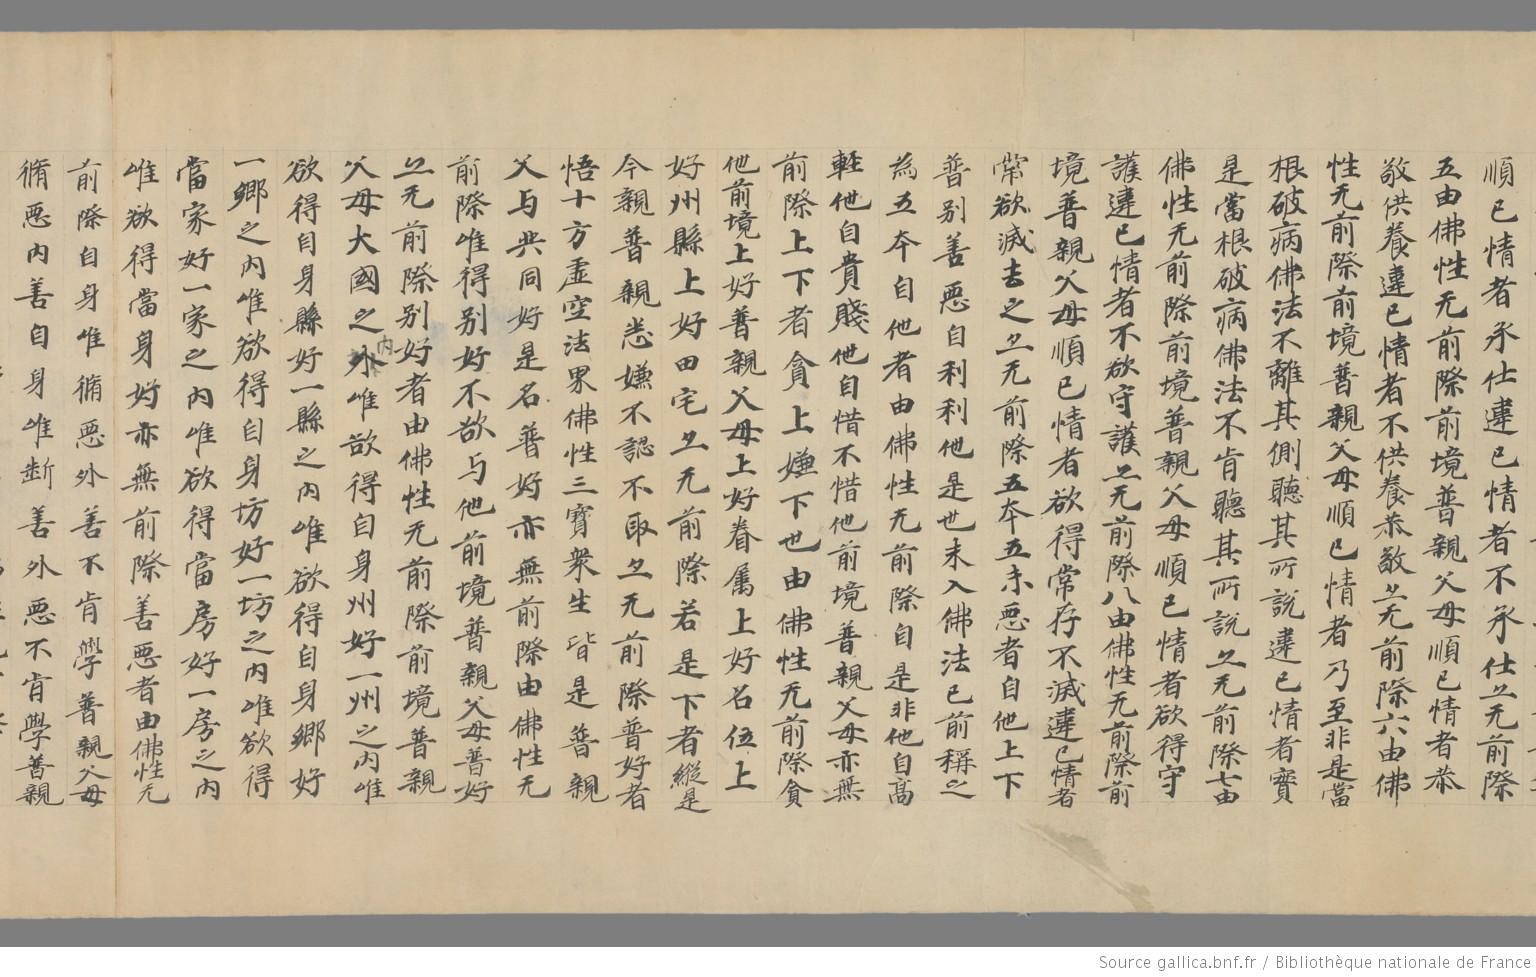 順已情者承仕違已情者不承仕亦无前際
五由佛性无前際前境普親父母順已情者恭
敬供養違已情者不供養恭敬亦无前際六由佛
性无前際前境普親父母順已情者乃至非是當
根破病佛法不離其側聽其所說違已情者實
是當根破病佛法不肯聽其所說亦无前際七由
佛性无前際前境普親父母順已情者欲得守
護違已情者不欲守護亦无前際八由佛性无前際前
境普親父母順已情者欲得常存不滅違已情者
常欲滅去之亦无前際五本五末惡者自他上下
普別善惡自利利他是世未入佛法已前稱之
為五本自他者由佛性无前際自是非他自高
輕他自貴賤他自惜不惜他前境普親父母亦無
前際上下者貪上嫌下也由佛性无前際貪
他前境上好普親父母上好眷屬上好名位上
好州縣上好田宅亦无前際若是下者縱是
今親普親悉嫌不認不取亦无前際普好者
悟十方虛空法界佛性三寶衆生皆是普親
父与共同好是名普好亦無前際由佛性无
前際唯得別好不欲与他前境普親父母普好
亦无前際別好者由佛性无前際前境普親
父母大國之外內唯欲得自身州好一州之內唯
欲得自身縣好一縣之內唯欲得自身鄉好
一鄉之內唯欲得自身坊好一坊之內唯欲得
當家好一家之內唯欲得當房好一房之內
唯欲得當身好亦無前際善惡者由佛性无
前際自身唯脩惡外善不肯學普親父母
脩惡內善自身唯斷善外惡不肯學普親
Source gallica.bnf.fr / Bibliothèque nationale de France